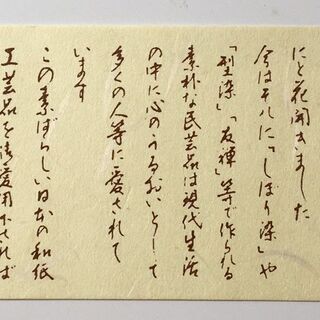 にと花開きました
今はそれに「しぼり染」や
「型染」「友禅」等で作られる
素朴な民芸品は現代生活
の中に心のうるおいとして
多くの人等に愛されて
います
この素ばらしい日本の和紙
工芸品を御愛用下されば